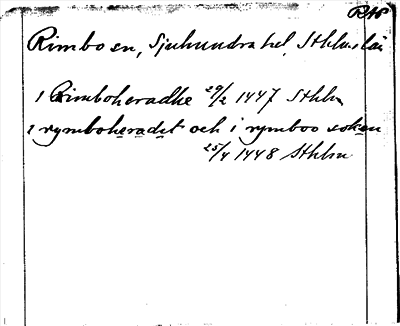 RAP
Rimbo sn, Sjuhundra hd, Sthlms län
i Rimboheradhe 29/2 1447 Sthlm
i rymboheradet och i rymboo soken
25/4 1448 Sthlm